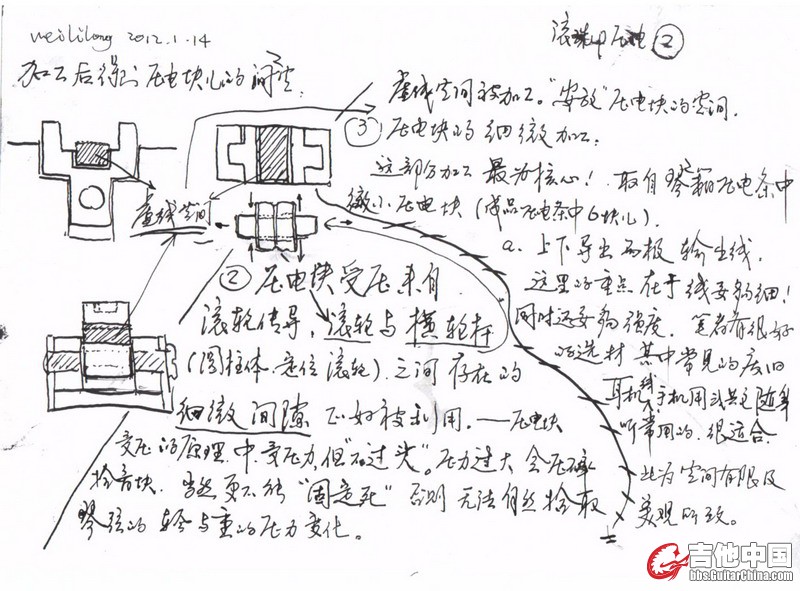 weililong 2012.1.14
滚珠中压电②
加工后得到压电块儿的间空:
虚线空间被加工。"安放"压电块的空间.
③ 压电块的细微加工:
这部分加工最为核心! 取自琴用压电条中
微小压电块(成品压电条中6块儿).
虚线空间
a. 上下导出两极输出线.
这里的重点在于线要多细!
同时还要多强度. 笔者有很好
的选材 其中常见的废旧
耳机线,手机用或其它随身
听常用的. 很适合.
此为空间有限及
美观所致。
② 压电块受压来自
滚轮传导, 滚轮与横轮杆
(圆柱体.定位滚轮).之间存在的
细微间隙 正好被利用.——压电块
受压的原理. 中受压力但"不过头"。压力过大会压碎
拾音块. 当然更不能"固定死" 否则无法自然拾取
琴弦的轻与重的压力变化。
吉他中国
bbs.GuitarChina.com